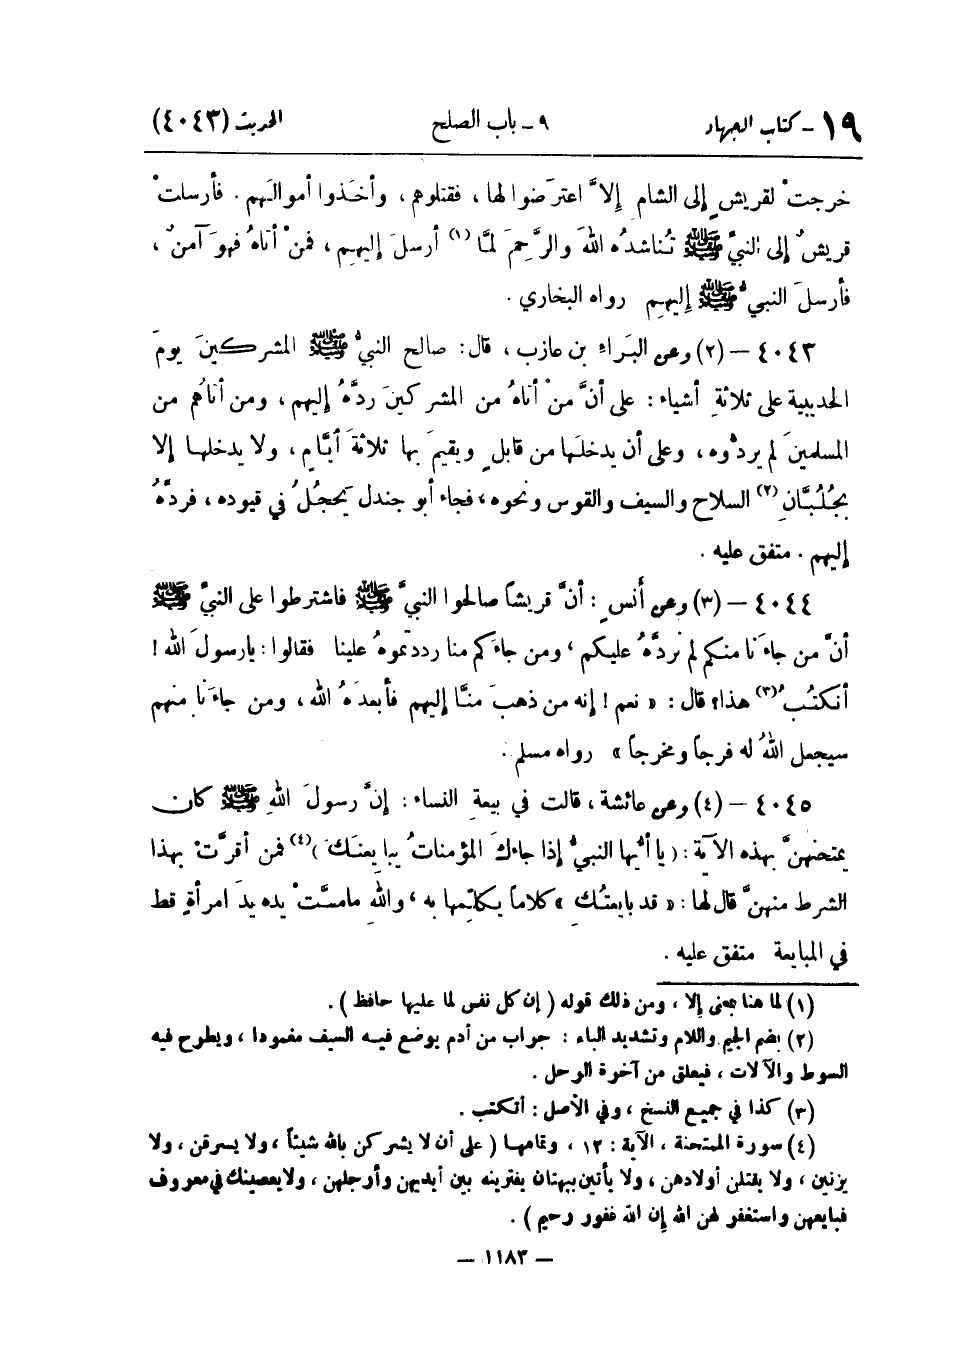 ١٩ - كتاب الجهاد ٩ - باب الصلح الحديث (٤٠٤٣)
خرجتْ لقريشٍ إلى الشام إلاَّ اعترَضوا لها ، فقتلوهم ، وأخذوا أموالَهم . فأرسلتْ
قريشٌ إلى النبيِّ ﷺ تُناشدُه اللهَ والرَّحِمَ لمَّا (١) أرسلَ إليهم ، فمنْ أتاهُ فهوَ آمنٌ ،
فأرسلَ النبيُّ ﷺ إليهِم رواه البخاري .
٤٠٤٣ - (٢) وعن البَراءِ بن عازب ، قال : صالح النبيُّ ﷺ المشركينَ يومَ
الحديبية على ثلاثةِ أشياء : على أنَّ منْ أتاهُ من المشركينَ ردَّهُ إليهم ، ومن أتاهُم من
المسلمينَ لم يردُّوه ، وعلى أن يدخلَها من قابلٍ ويقيمَ بها ثلاثةَ أيَّامٍ ، ولا يدخلها إلا
بجُلُبَّانِ (٢) السلاح والسيف والقوس ونحوه ، فجاء أبو جندل يَحجُلُ في قيوده ، فردَّهُ
إليهم . متفق عليه .
٤٠٤٤ - (٣) وعن أنسٍ : أنَّ قريشاً صالحوا النبيَّ ﷺ فاشترطوا على النبيِّ ﷺ
أنَّ من جاءَنا منكم لم نردَّهُ عليكم ، ومن جاءَكم منا رددتموهُ علينا فقالوا : يارسولَ الله !
أنكتُبُ (٣) هذا ؟ قال : « نعم ! إنه من ذهبَ منَّا إليهم فأبعدَهُ الله ، ومن جاءَنا منهم
سيجعل اللهُ له فرجاً ومخرجاً » رواه مسلم .
٤٠٤٥ - (٤) وعن عائشة ، قالت في بيعةِ النساء : إنَّ رسولَ اللهِ ﷺ كان
يمتحنهنَّ بهذه الآية : ( يا أيُّها النبيُّ إذا جاءكَ المؤمناتُ يبايعنَكَ ) (٤) فمن أقرَّتْ بهذا
الشرط منهنَّ قال لها : « قد بايعتُكِ » كلاماً يكلّمها به ، واللهِ مامسَّتْ يده يدَ امرأةٍ قط
في المبايعة متفق عليه .
(١) لما هنا بمعنى إلا ، ومن ذلك قوله ( إن كل نفس لما عليها حافظ ) .
(٢) بضم الجيم واللام وتشديد الباء : جراب من أدم يوضع فيه السيف مغمودا ، ويطرح فيه
السوط والآلات ، فيعلق من آخرة الرحل .
(٣) كذا في جميع النسخ ، وفي الأصل : أتكتب .
(٤) سورة الممتحنة ، الآية : ١٢ ، وتمامها ( على أن لا يشركن بالله شيئاً ، ولا يسرقن ، ولا
يزنين ، ولا يقتلن أولادهن ، ولا يأتين ببهتان يفترينه بين أيديهن وأرجلهن ، ولا يعصينك في معروف
فبايعهن واستغفر لهن الله إن الله غفور رحيم ) .
- ١١٨٣ -